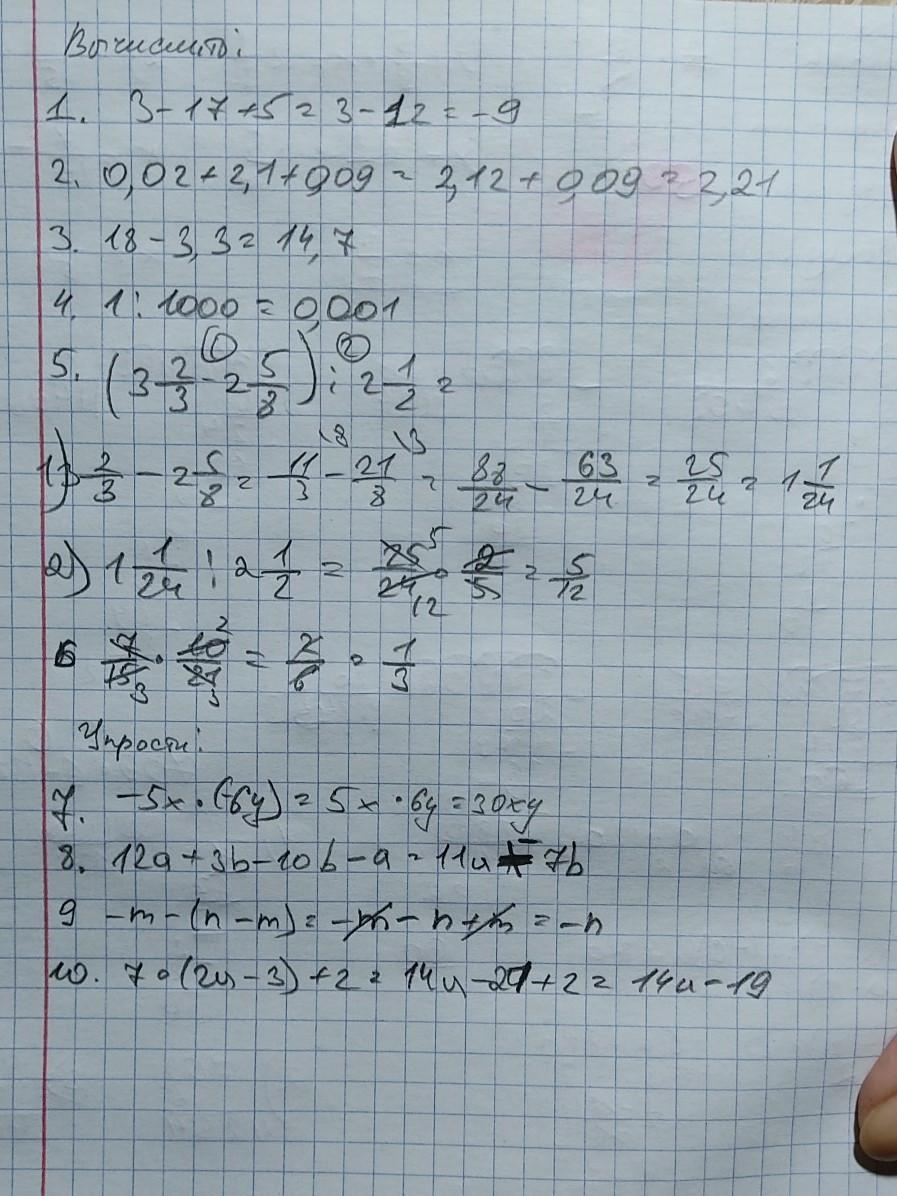 Вычислить:
1. 3 - 17 + 5 = 3 - 12 = -9
2. 0,02 + 2,1 + 0,09 = 2,12 + 0,09 = 2,21
3. 18 - 3,3 = 14,7
4. 1 : 1000 = 0,001
5. (3 2/3 - 2 5/8) : 2 1/2 =
1) 3 2/3 - 2 5/8 = 11/3 - 21/8 = 88/24 - 63/24 = 25/24 = 1 1/24
2) 1 1/24 : 2 1/2 = 25/24 · 2/5 = 5/12
6 7/15 · 10/21 = 2/6 = 1/3
Упрости:
7. -5x · (-6y) = 5x · 6y = 30xy
8. 12a + 3b - 10b - a = 11a - 7b
9 -m - (n - m) = -m - n + m = -n
10. 7 · (2y - 3) + 2 = 14y - 21 + 2 = 14y - 19